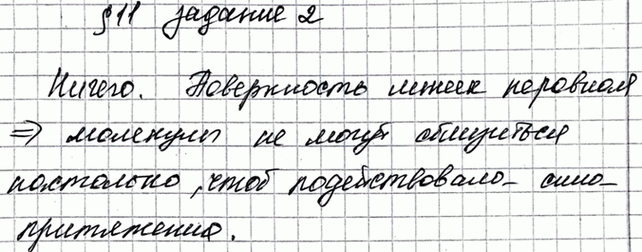 §11 задание 2
Ничего. Поверхность линеек неровная
⇒ молекулы не могут сблизиться
настолько, чтоб подействовало сила
притяжения.